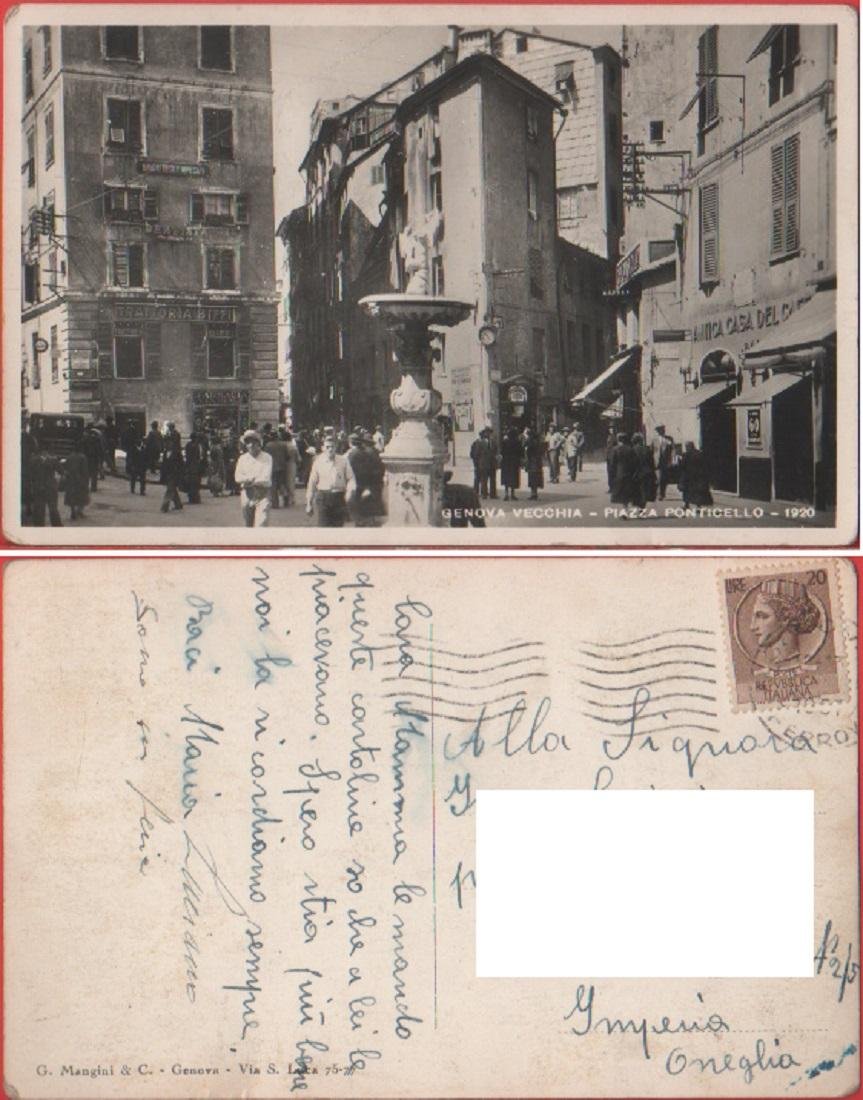 TRATTORIA BIFFI
ANTICA CASA DEL
GENOVA VECCHIA - PIAZZA PONTICELLO - 1920
LIRE 20
REPUBBLICA
ITALIANA
Cara Mamma le mando
queste cartoline so che a lei le
piacevano. Spero stia più bene
noi la ricordiamo sempre
Baci Maria Luciano
Alla Signora
Imperia
Oneglia
G. Mangini & C. - Genova - Via S. Luca 75-77